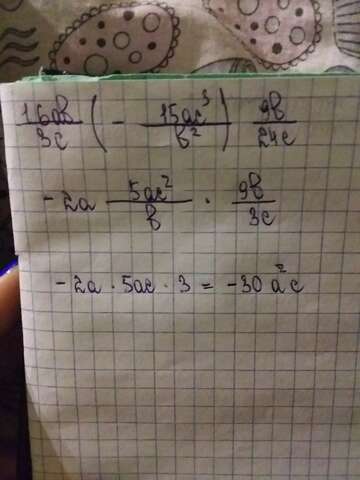 16ab/3c (- 15ac³/b²) 9b/24c
-2a 5ac²/b · 9b/3c
-2a · 5ac · 3 = -30a²c